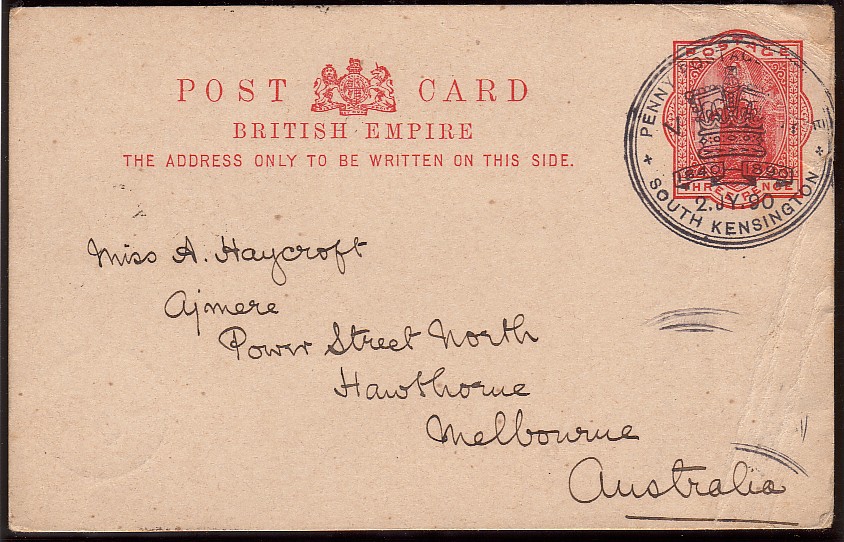 POST CARD
BRITISH EMPIRE
THE ADDRESS ONLY TO BE WRITTEN ON THIS SIDE.
POSTAGE
THREE PENCE
PENNY
1840 1890
2.JY.90
SOUTH KENSINGTON
Miss A. Haycroft
Ajmere
Power Street North
Hawthorne
Melbourne
Australia